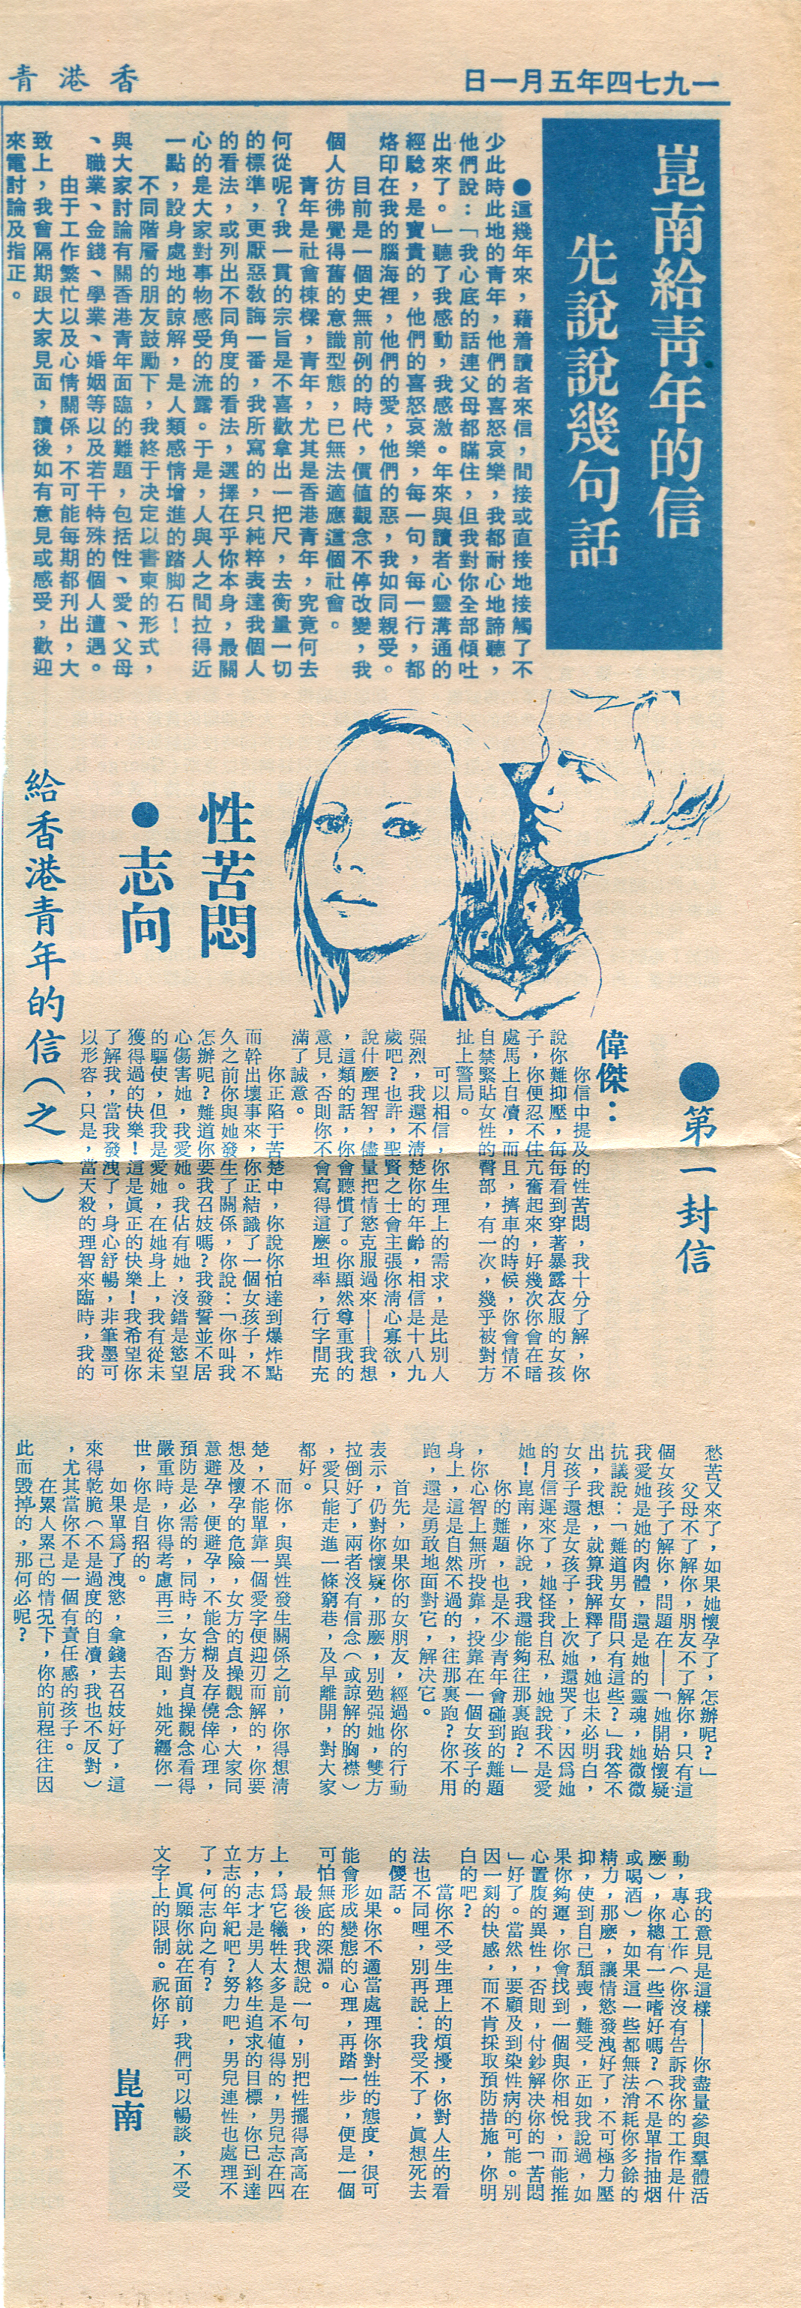 香港青
一九七四年五月一日
崑南給青年的信
先說說幾句話
●這幾年來，藉着讀者來信，間接或直接地接觸了不
少此時此地的青年，他們的喜怒哀樂，我都耐心地諦聽，
他們說：「我心底的話連父母都瞞住，但我對你全部傾吐
出來了。」聽了我感動，我感激。年來與讀者心靈溝通的
經驗，是寶貴的，他們的喜怒哀樂，每一句，每一行，都
烙印在我的腦海裡，他們的愛，他們的惡，我如同親受。
目前是一個史無前例的時代，價値觀念不停改變，我
個人彷彿覺得舊的意識型態，已無法適應這個社會。
青年是社會棟樑，青年，尤其是香港青年，究竟何去
何從呢？我一貫的宗旨是不喜歡拿出一把尺，去衡量一切
的標準，更厭惡敎誨一番，我所寫的，只純粹表達我個人
的看法，或列出不同角度的看法，選擇在乎你本身，最關
心的是大家對事物感受的流露。于是，人與人之間拉得近
一點，設身處地的諒解，是人類感情增進的踏脚石！
不同階層的朋友鼓勵下，我終于決定以書柬的形式，
與大家討論有關香港青年面臨的難題，包括性、愛、父母
、職業、金錢、學業、婚姻等以及若干特殊的個人遭遇。
由于工作繁忙以及心情關係，不可能每期都刊出，大
致上，我會隔期跟大家見面，讀後如有意見或感受，歡迎
來電討論及指正。
性苦悶
●志向
給香港青年的信（之一）
●第一封信
偉傑：
你信中提及的性苦悶，我十分了解，你
說你難抑壓，每每看到穿著暴露衣服的女孩
子，你便忍不住亢奮起來，好幾次你會在暗
處馬上自凟，而且，擠車的時候，你會情不
自禁緊貼女性的臀部，有一次，幾乎被對方
扯上警局。
可以相信，你生理上的需求，是比別人
强烈，我還不清楚你的年齡，相信是十八九
歲吧？也許，聖賢之士會主張你清心寡欲，
說什麽理智，儘量把情慾克服過來——我想
，這類的話，你會聽慣了。你顯然尊重我的
意見，否則你不會寫得這麽坦率，行字間充
滿了誠意。
你正陷于苦楚中，你說你怕達到爆炸點
而幹出壞事來，你正結識了一個女孩子，不
久之前你與她發生了關係，你說：「你叫我
怎辦呢？難道你要我召妓嗎？我發誓並不居
心傷害她，我愛她。我佔有她，沒錯是慾望
的驅使，但我是愛她，在她身上，我有從未
獲得過的快樂！這是眞正的快樂！我希望你
了解我，當我發洩了，身心舒暢，非筆墨可
以形容，只是，當天殺的理智來臨時，我的
愁苦又來了，如果她懷孕了，怎辦呢？」
父母不了解你，朋友不了解你，只有這
個女孩子了解你，問題在——「她開始懷疑
我愛她是她的肉體，還是她的靈魂，她微微
抗議說：「難道男女間只有這些？」我答不
出，我想，就算我解釋了，她也未必明白，
女孩子還是女孩子，上次她還哭了，因爲她
的月信遲來了，她怪我自私，她說我不是愛
她！崑南，你說，我還能夠往那裏跑？」
你的難題，也是不少青年會碰到的難題
，你心智上無所投靠，投靠在一個女孩子的
身上，這是自然不過的，往那裏跑？你不用
跑，還是勇敢地面對它，解決它。
首先，如果你的女朋友，經過你的行動
表示，仍對你懷疑，那麽，別勉强她，雙方
拉倒好了，兩者沒有信念（或諒解的胸襟）
，愛只能走進一條窮巷，及早離開，對大家
都好。
而你，與異性發生關係之前，你得想清
楚，不能單靠一個愛字便迎刃而解的，你要
想及懷孕的危險，女方的貞操觀念，大家同
意避孕，便避孕，不能含糊及存僥倖心理，
預防是必需的，同時，女方對貞操觀念看得
嚴重時，你得考慮再三，否則，她死纒你一
世，你是自招的。
如果單爲了洩慾，拿錢去召妓好了，這
來得乾脆（不是過度的自凟，我也不反對）
，尤其當你不是一個有責任感的孩子。
在累人累己的情況下，你的前程往往因
此而毀掉的，那何必呢？
我的意見是這樣——你盡量參與羣體活
動，專心工作（你沒有告訴我你的工作是什
麽），你總有一些嗜好嗎？（不是單指抽烟
或喝酒），如果這一些都無法消耗你多餘的
精力，那麽，讓情慾發洩好了，不可極力壓
抑，使到自己頹喪，難受，正如我說過，如
果你夠運，你會找到一個與你相悅，而能推
心置腹的異性，否則，付鈔解決你的「苦悶
」好了。當然，要顧及到染性病的可能。別
因一刻的快感，而不肯採取預防措施，你明
白的吧？
當你不受生理上的煩擾，你對人生的看
法也不同哩，別再說：我受不了，眞想死去
的儍話。
如果你不適當處理你對性的態度，很可
能會形成變態的心理，再踏一步，便是一個
可怕無底的深淵。
最後，我想說一句，別把性擺得高高在
上，爲它犧牲太多是不值得的，男兒志在四
方，志才是男人終生追求的目標，你已到達
立志的年紀吧？努力吧，男兒連性也處理不
了，何志向之有？
眞願你就在面前，我們可以暢談，不受
文字上的限制。祝你好
崑南